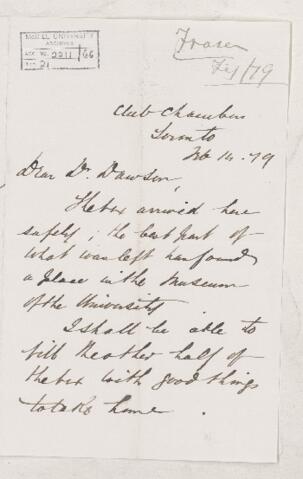 McGILL UNIVERSITY
ARCHIVES
ACC. NO. 2211/66
REF. 21
Fraser
Fe/79
Club Chambers
Toronto
Feb 14. 79
Dear Dr. Dawson,
The box arrived here
safely; the best part of
what was left has found
a place in the Museum
of the University
I shall be able to
fill the other half of
the box with good things
to take home.